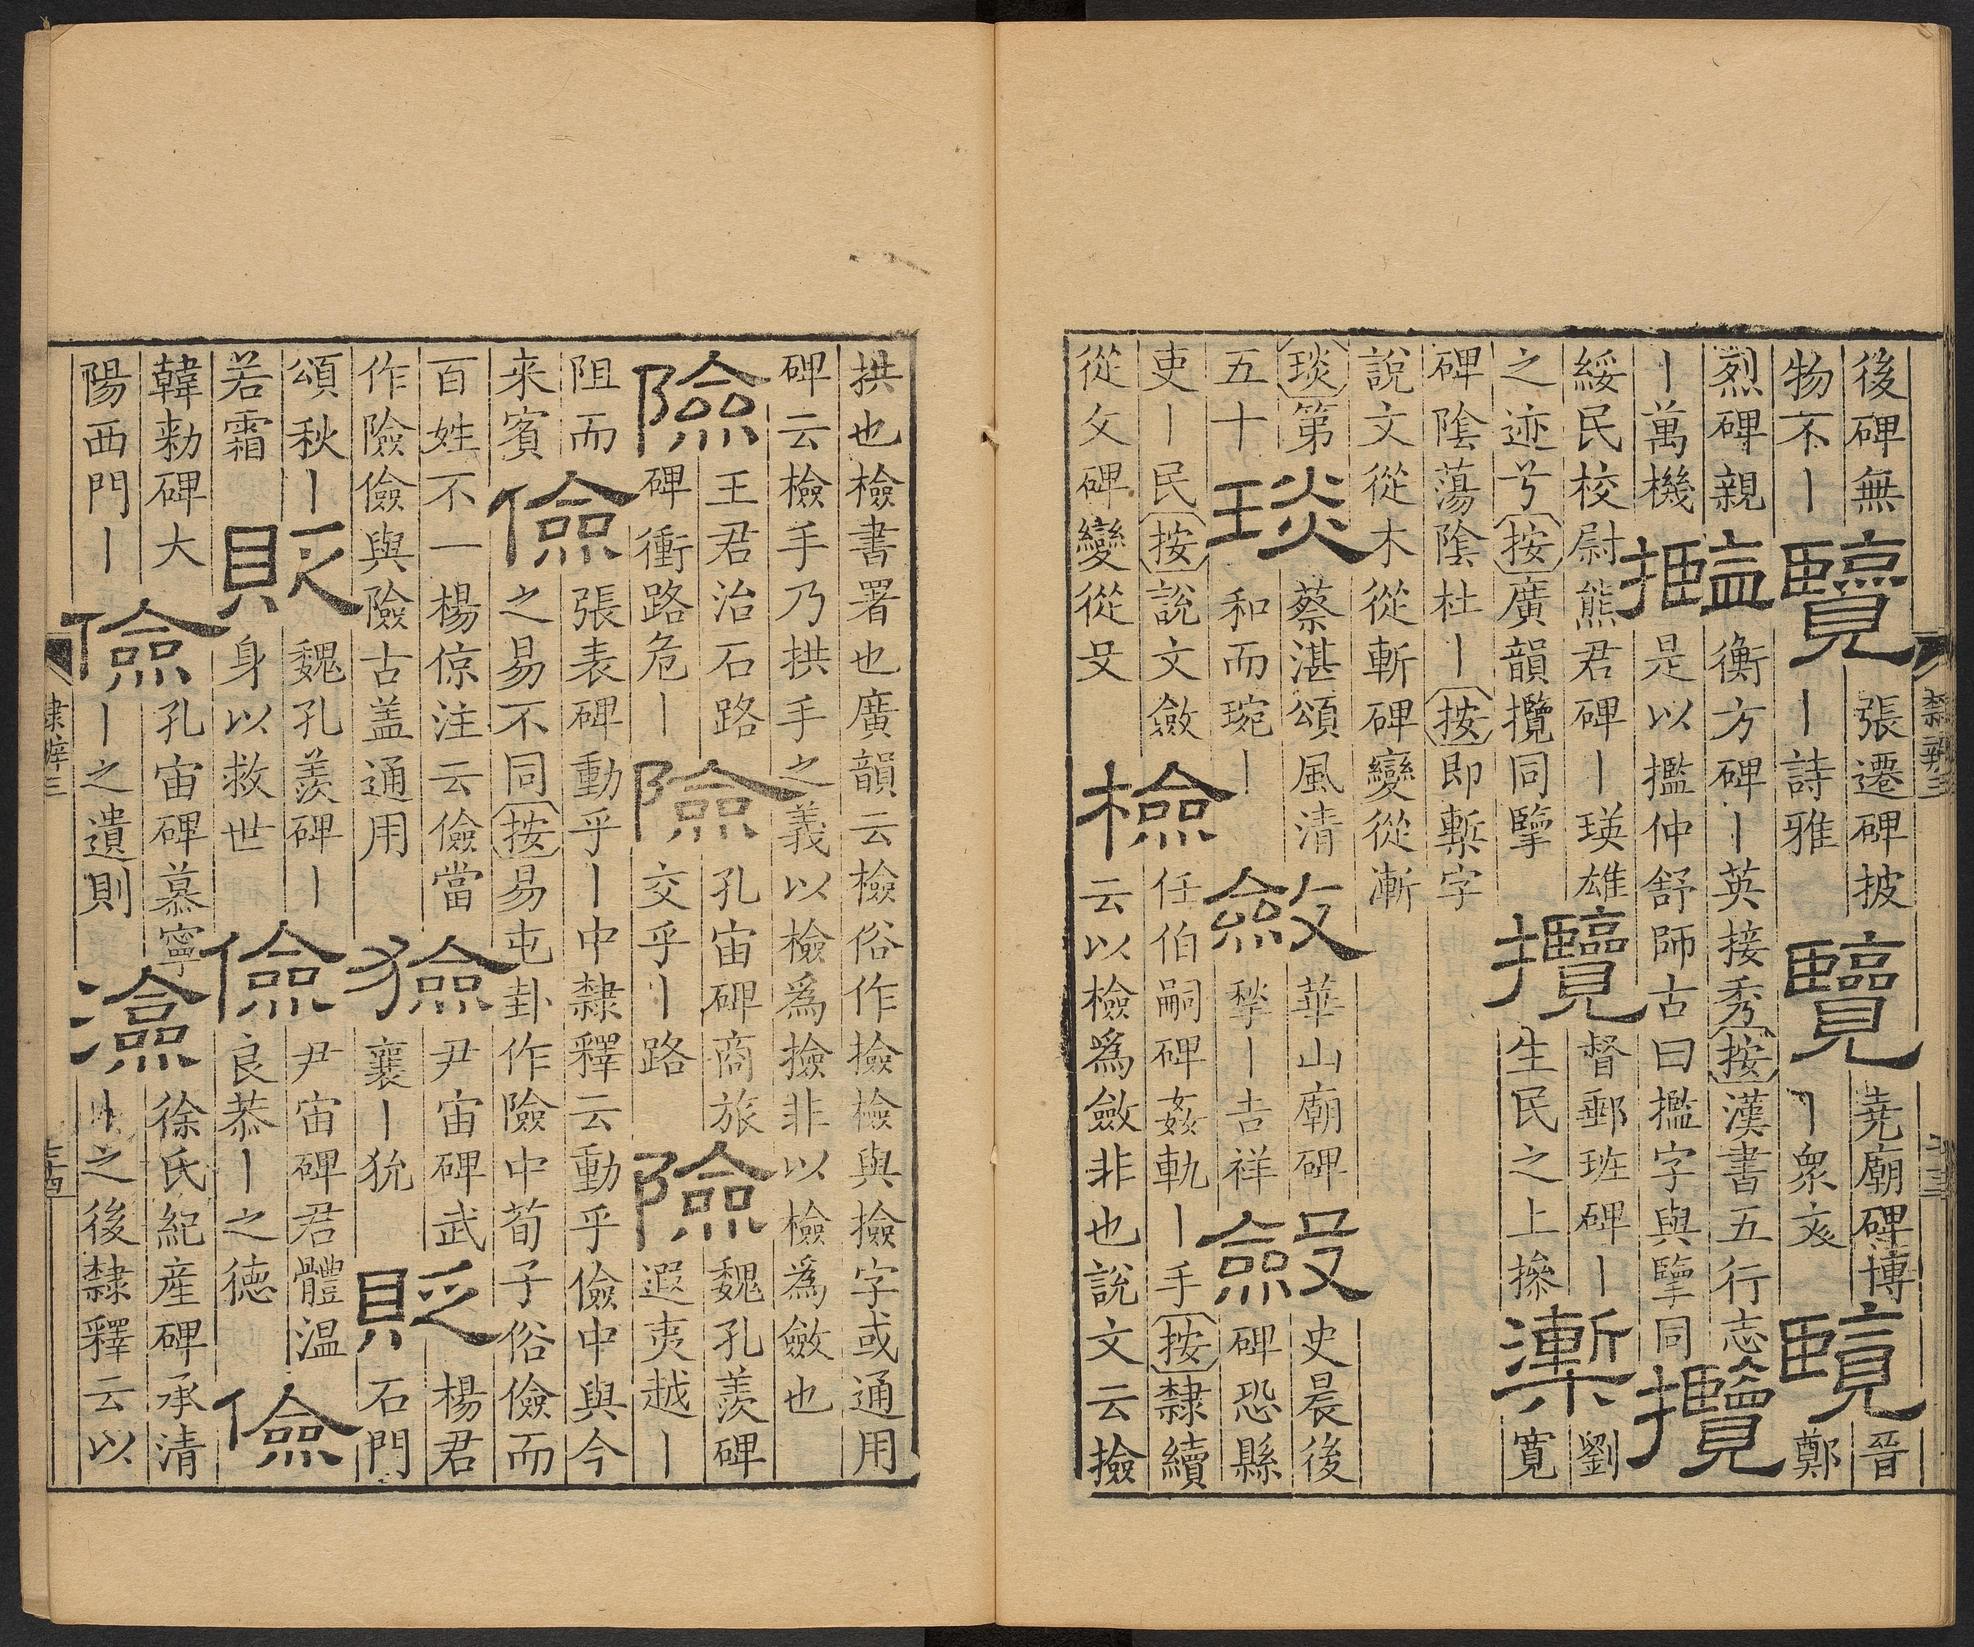 後碑無
物不丨
覽
張遷碑披
丨詩雅
覽
堯廟碑博
丨衆亥
覽
晉
鄭
烈碑親
丨萬機
㩜
衡方碑丨英接秀按漢書五行志
是以㩜仲舒師古曰㩜字與擥同
攬
綏民校尉熊君碑丨瑛雄
之迹兮按廣韻攬同擥
攬
督郵班碑丨
生民之上摻
槧
劉
寬
碑陰蕩陰杜丨按即槧字
說文從木從斬碑變從漸
琰第
五十
琰
蔡湛頌風清
和而琬丨
斂
華山廟碑
犂丨吉祥
斂
史晨後
碑恐縣
吏丨民按說文斂
從攵碑變從殳
檢
任伯嗣碑姦軌丨手按隸續
云以檢爲斂非也說文云撿
隸辨三
拱也檢書署也廣韻云檢俗作撿檢與撿字或通用
碑云檢手乃拱手之義以檢爲撿非以檢爲斂也
險
王君治石路
碑衝路危丨
險
孔宙碑商旅
交乎丨路
險
魏孔羨碑
遐夷越丨
阻而
来賓
儉
張表碑動乎丨中隸釋云動乎儉中與今
之易不同按易屯卦作險中荀子俗儉而
百姓不一楊倞注云儉當
作險儉與險古盖通用
獫
尹宙碑武
襄丨狁
貶
楊君
石門
頌秋丨
若霜
貶
魏孔羨碑丨
身以救世
儉
尹宙碑君體温
良恭丨之德
儉
韓勑碑大
陽西門丨
儉
孔宙碑慕寧
丨之遺則
儉
徐氏紀産碑承清
丨之後隸釋云以
隸辨三